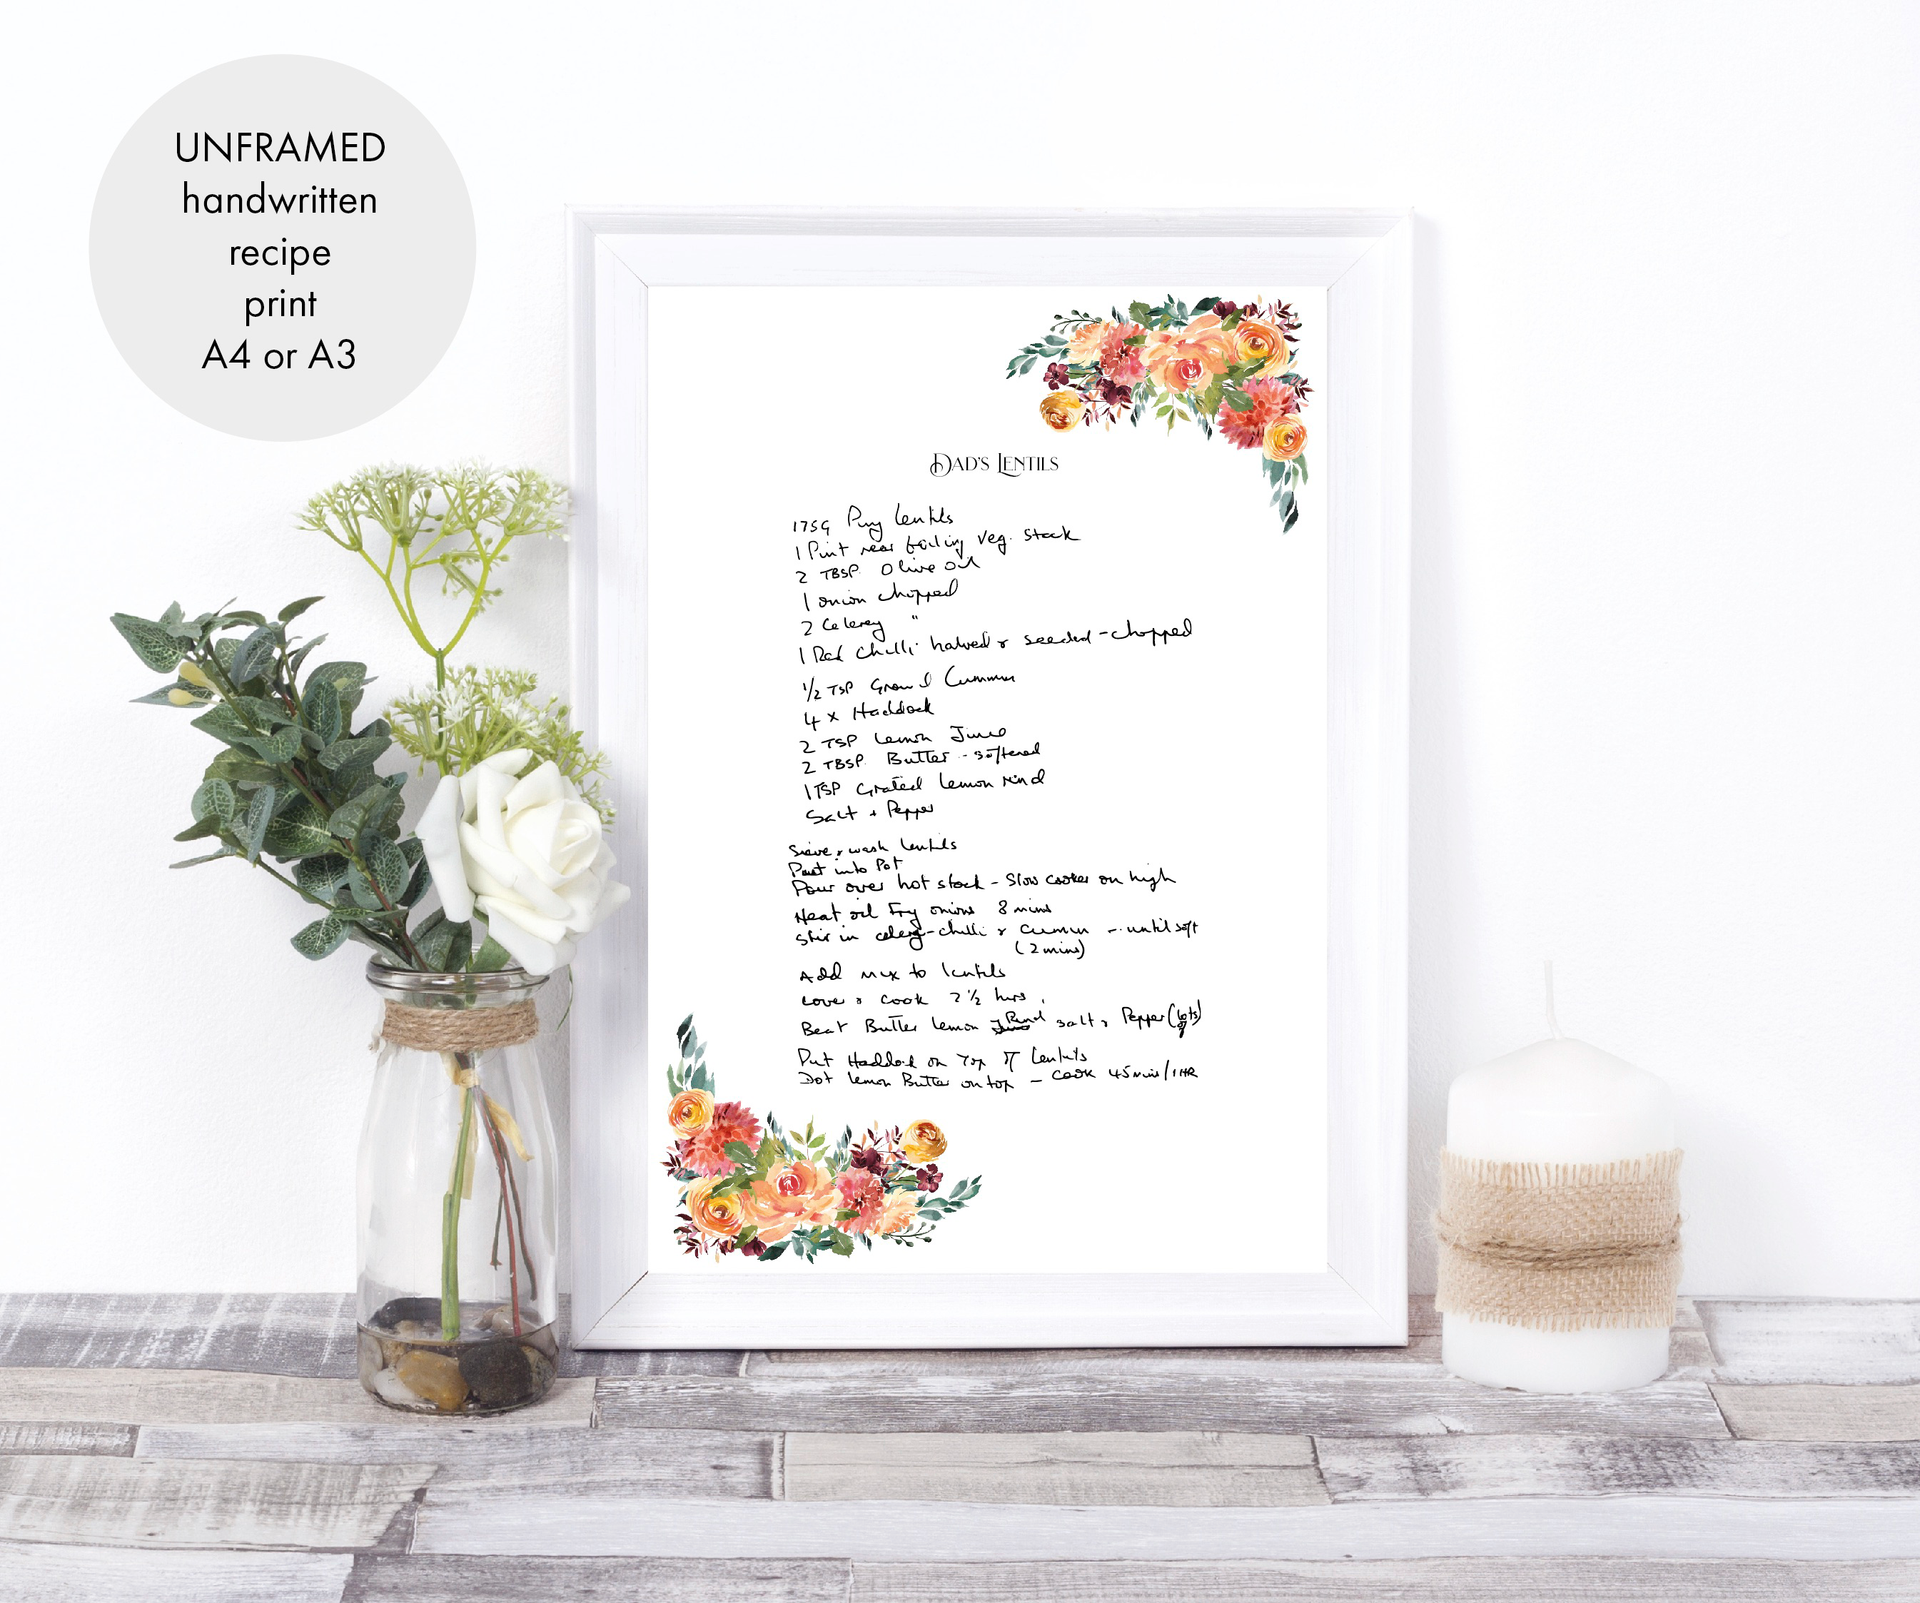 UNFRAMED
handwritten
recipe
print
A4 or A3
DAD'S LENTILS
175g Puy Lentils
1 Pint near boiling veg. stock
2 TBSP. Olive Oil
1 onion chopped
2 Celerey "
1 Red chilli halved & seeded - chopped
1/2 TSP Ground Cummin
4 x Haddock
2 TSP Lemon Juice
2 TBSP. Butter - softened
1 TSP Grated Lemon rind
Salt + Pepper
Sieve & wash lentils
Put into Pot
Pour over hot stock - Slow cooker on high
Heat oil Fry onions 8 mins
Stir in celery - chilli & cumin - until soft
(2 mins)
Add mix to lentils
Cover & cook 2 1/2 hrs.
Beat Butter Lemon Rind salt & Pepper (lots of)
Put Haddock on Top of Lentils
Dot Lemon Butter on top - Cook 45 mins/1HR